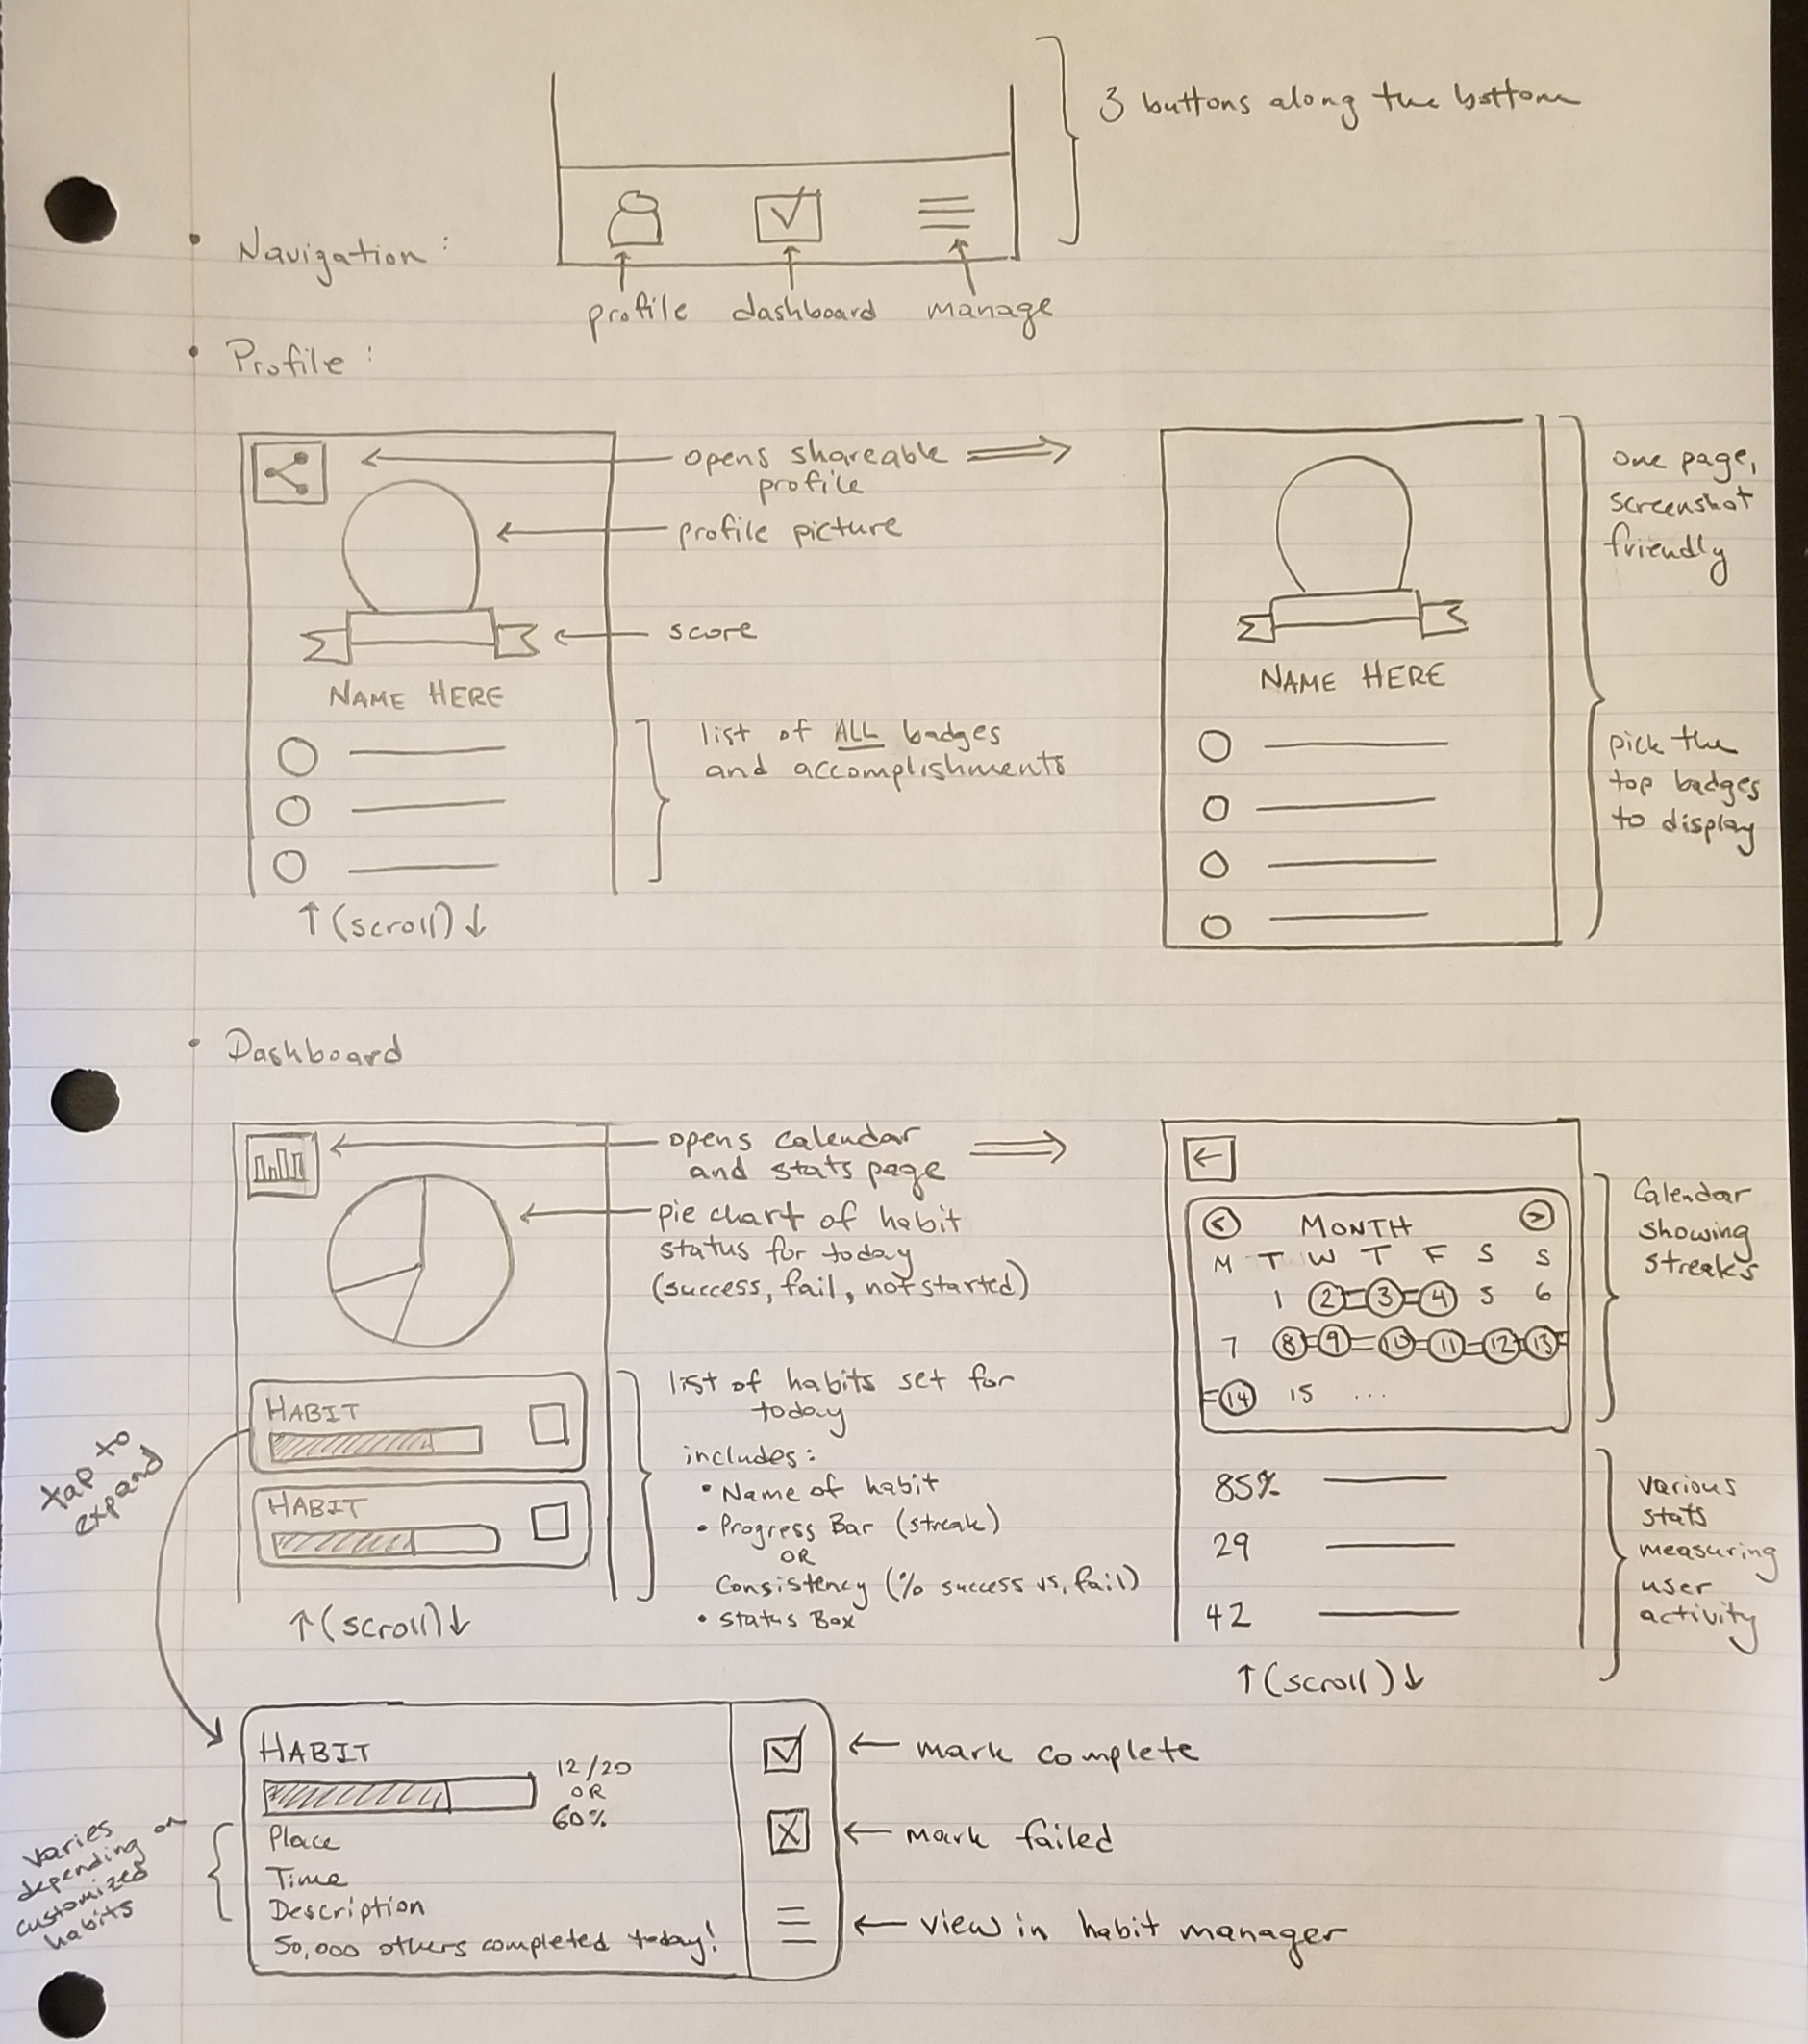 3 buttons along the bottom
• Navigation:
profile dashboard manage
• Profile:
opens shareable
profile
profile picture
score
NAME HERE
list of ALL badges
and accomplishments
↑ (scroll) ↓
NAME HERE
one page,
screenshot
friendly
pick the
top badges
to display
• Dashboard
opens calendar
and stats page
pie chart of habit
status for today
(success, fail, not started)
HABIT
HABIT
↑ (scroll) ↓
tap to
expand
list of habits set for
today
includes:
• Name of habit
• Progress Bar (streak)
OR
Consistency (% success vs. fail)
• Status Box
←
< MONTH >
M T W T F S S
1 2 3 4 5 6
7 8 9 10 11 12 13
14 15 ...
Calendar
showing
streaks
85%
29
42
various
stats
measuring
user
activity
↑ (scroll) ↓
HABIT
12/20
OR
60%
Place
Time
Description
50,000 others completed today!
varies
depending on
customized
habits
← mark complete
← mark failed
← view in habit manager